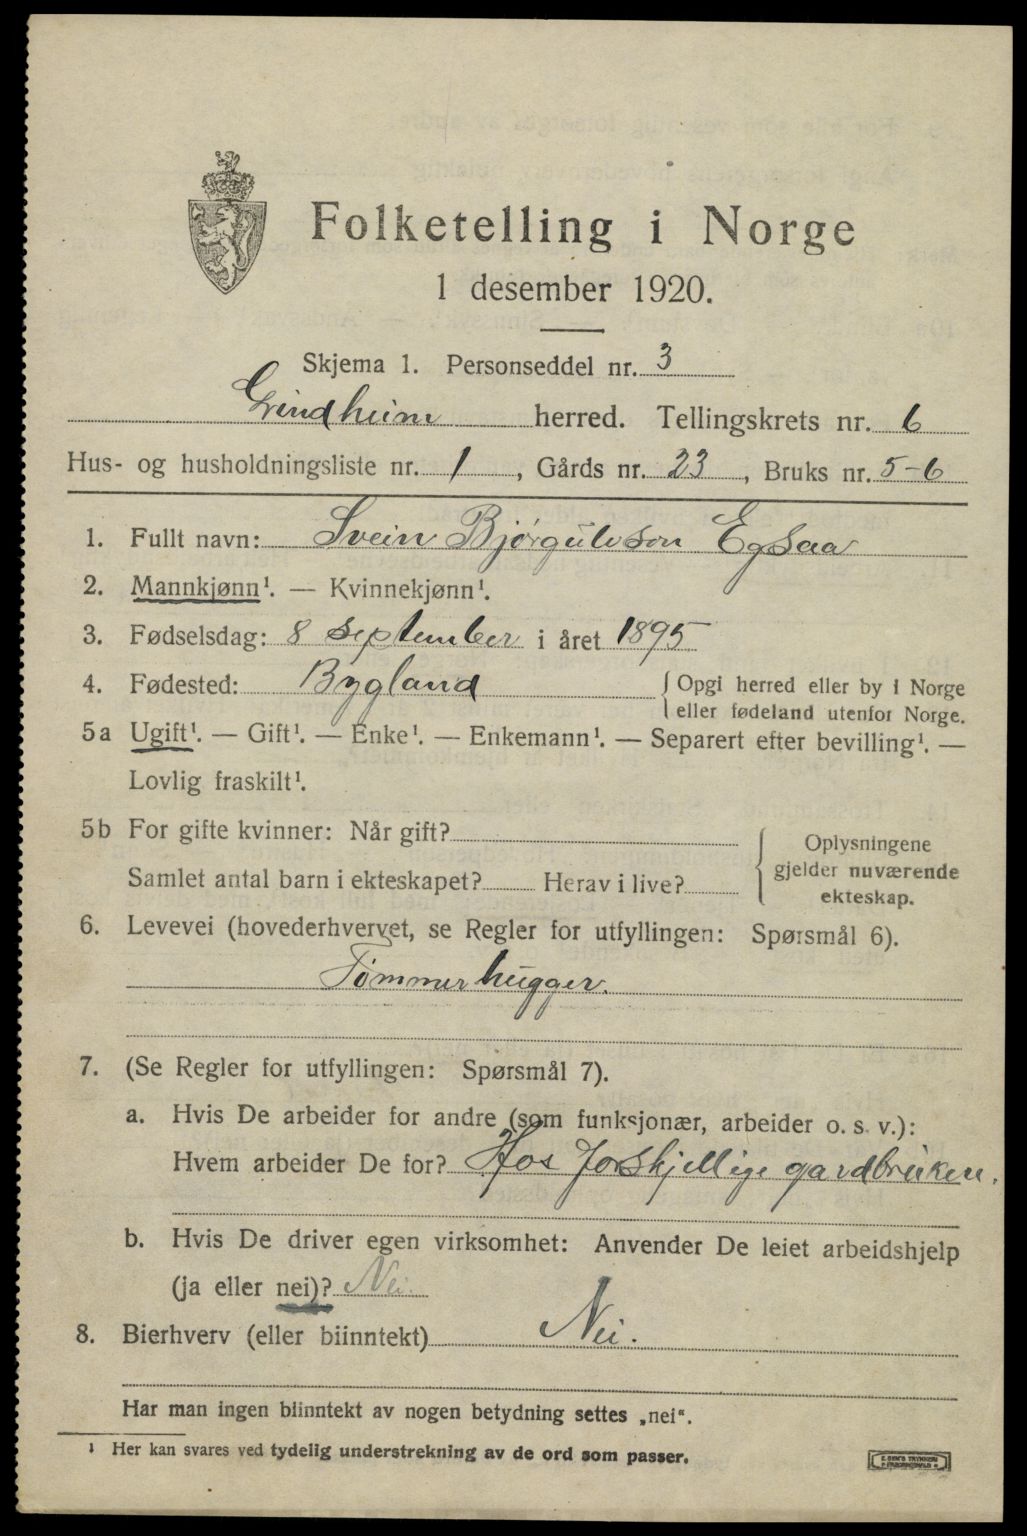 Folketelling i Norge
1 desember 1920.
Skjema 1. Personseddel nr. 3
Grindheim herred. Tellingskrets nr. 6
Hus- og husholdningsliste nr. 1, Gårds nr. 23, Bruks nr. 5-6
1. Fullt navn: Svein Bjørgulvson Egsaa
2. Mannkjønn¹. — Kvinnekjønn¹.
3. Fødselsdag: 8 september i året 1895
4. Fødested: Bygland { Opgi herred eller by i Norge
eller fødeland utenfor Norge.
5a Ugift¹. — Gift¹. — Enke¹. — Enkemann¹. — Separert efter bevilling¹. —
Lovlig fraskilt¹.
5b For gifte kvinner: Når gift?
Samlet antal barn i ekteskapet? Herav i live?
{ Oplysningene
gjelder nuværende
ekteskap.
6. Levevei (hovederhvervet, se Regler for utfyllingen: Spørsmål 6).
Tømmerhugger.
7. (Se Regler for utfyllingen: Spørsmål 7).
a. Hvis De arbeider for andre (som funksjonær, arbeider o. s. v.):
Hvem arbeider De for? Hos forskjellige gardbruken.
b. Hvis De driver egen virksomhet: Anvender De leiet arbeidshjelp
(ja eller nei)? Nei.
8. Bierhverv (eller biinntekt) Nei.
Har man ingen biinntekt av nogen betydning settes „nei“.
¹ Her kan svares ved tydelig understrekning av de ord som passer.